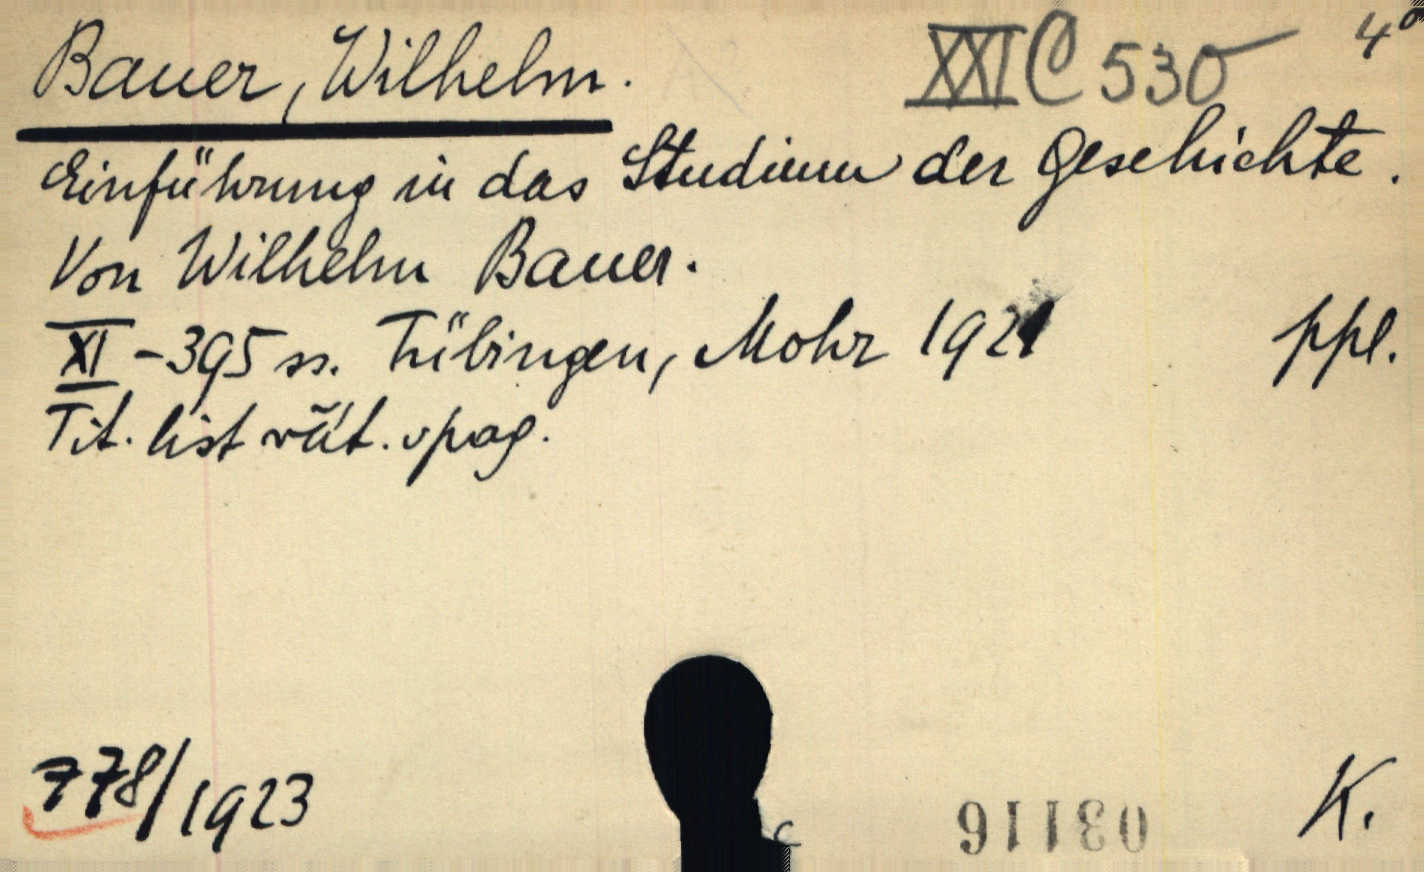 Bauer, Wilhelm. XXI C 530 4°
Einführung in das Studium der Geschichte.
Von Wilhelm Bauer.
XI-395 ss. Tübingen, Mohr 1921 ppl.
Tit. list vät. v pag.
778/1923 03116 K.